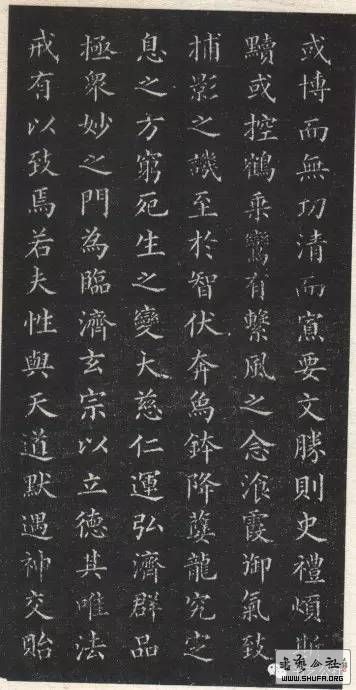 或博而無功清而寡要文勝則史禮煩斯
黷或控鶴乗鸞有繫風之念飡霞御氣致
捕影之譏至於智伏奔烏鉢降龍究
息之方窮死生之變大慈仁運弘濟群品
極衆妙之門為臨濟玄宗以立德其唯法
戒有以致焉若夫性與天道默遇神交貽
书艺公社
WWW.SHUFA.ORG